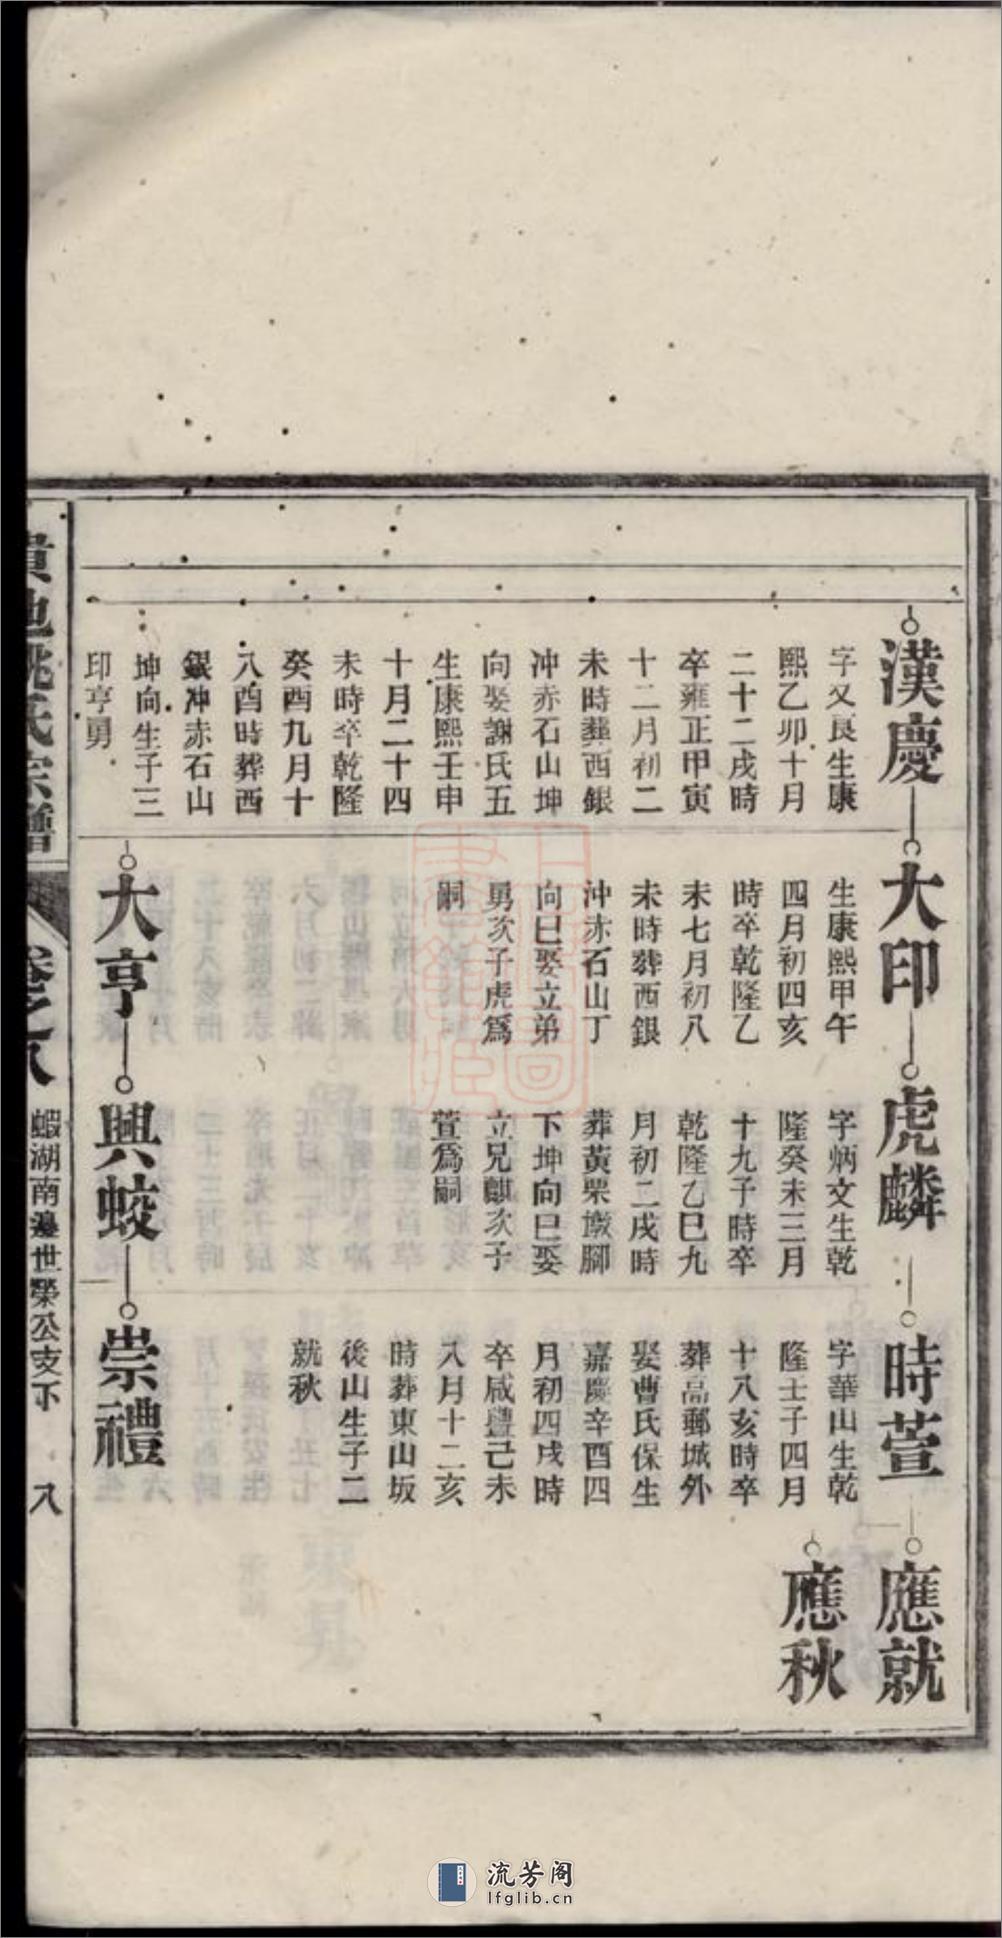 漢慶
字又良生康
熙乙卯十月
二十二戌時
卒雍正甲寅
十二月初二
未時葬西銀
沖赤石山坤
向娶謝氏五
生康熙壬申
十月二十四
未時卒乾隆
癸酉九月十
八酉時葬西
銀沖赤石山
坤向生子三
印亨勇
大印
生康熙甲午
四月初四亥
時卒乾隆乙
未七月初八
未時葬西銀
沖赤石山丁
向巳娶立弟
勇次子虎爲
嗣
大亨
虎麟
字炳文生乾
隆癸未三月
十九子時卒
乾隆乙巳九
月初二戌時
葬黃栗墩腳
下坤向巳娶
立兄麒次子
萱爲嗣
興蛟
時萱
字華山生乾
隆壬子四月
十八亥時卒
葬高郵城外
娶曹氏保生
嘉慶辛酉四
月初四戌時
卒咸豐己未
八月十二亥
時葬東山坂
後山生子二
就秋
崇禮
應就
應秋
貴池姚氏宗譜
卷之八
蝦湖南邊世榮公支下
八
流芳阁
lfglib.cn